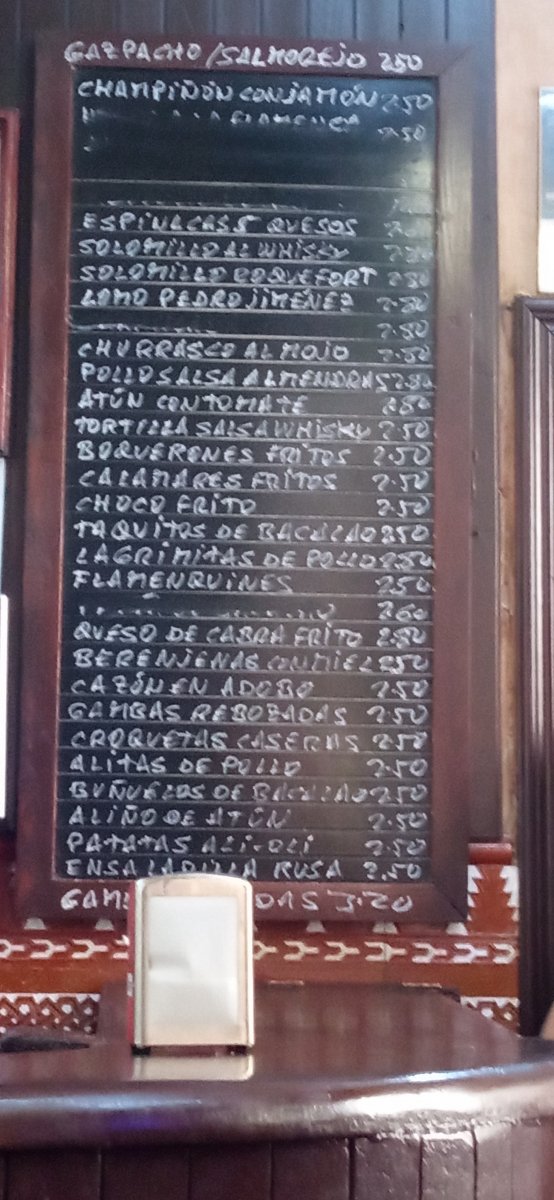 GAZPACHO/SALMOREJO 2'50
CHAMPIÑÓN CON JAMÓN 2'50
FLAMENCA 2'50
ESPINACAS 5 QUESOS
SOLOMILLO AL WHISKY 2'80
SOLOMILLO ROQUEFORT 2'80
LOMO PEDRO JIMÉNEZ 2'80
2'80
CHURRASCO AL MOJO 2'80
POLLO SALSA ALMENDRAS 2'80
ATÚN CON TOMATE 2'80
TORTILLA SALSA WHISKY 2'50
BOQUERONES FRITOS 2'50
CALAMARES FRITOS 2'50
CHOCO FRITO 2'50
TAQUITOS DE BACALAO 2'50
LAGRIMITAS DE POLLO 2'50
FLAMENQUINES 2'50
2'60
QUESO DE CABRA FRITO 2'80
BERENJENAS CON MIEL 2'50
CAZÓN EN ADOBO 2'50
GAMBAS REBOZADAS 2'50
CROQUETAS CASERAS 2'50
ALITAS DE POLLO 2'50
BUÑUELOS DE BACALAO 2'50
ALIÑO DE ATÚN 2'50
PATATAS ALI-OLI 2'50
ENSALADILLA RUSA 2'50
GAM DAS 3'20